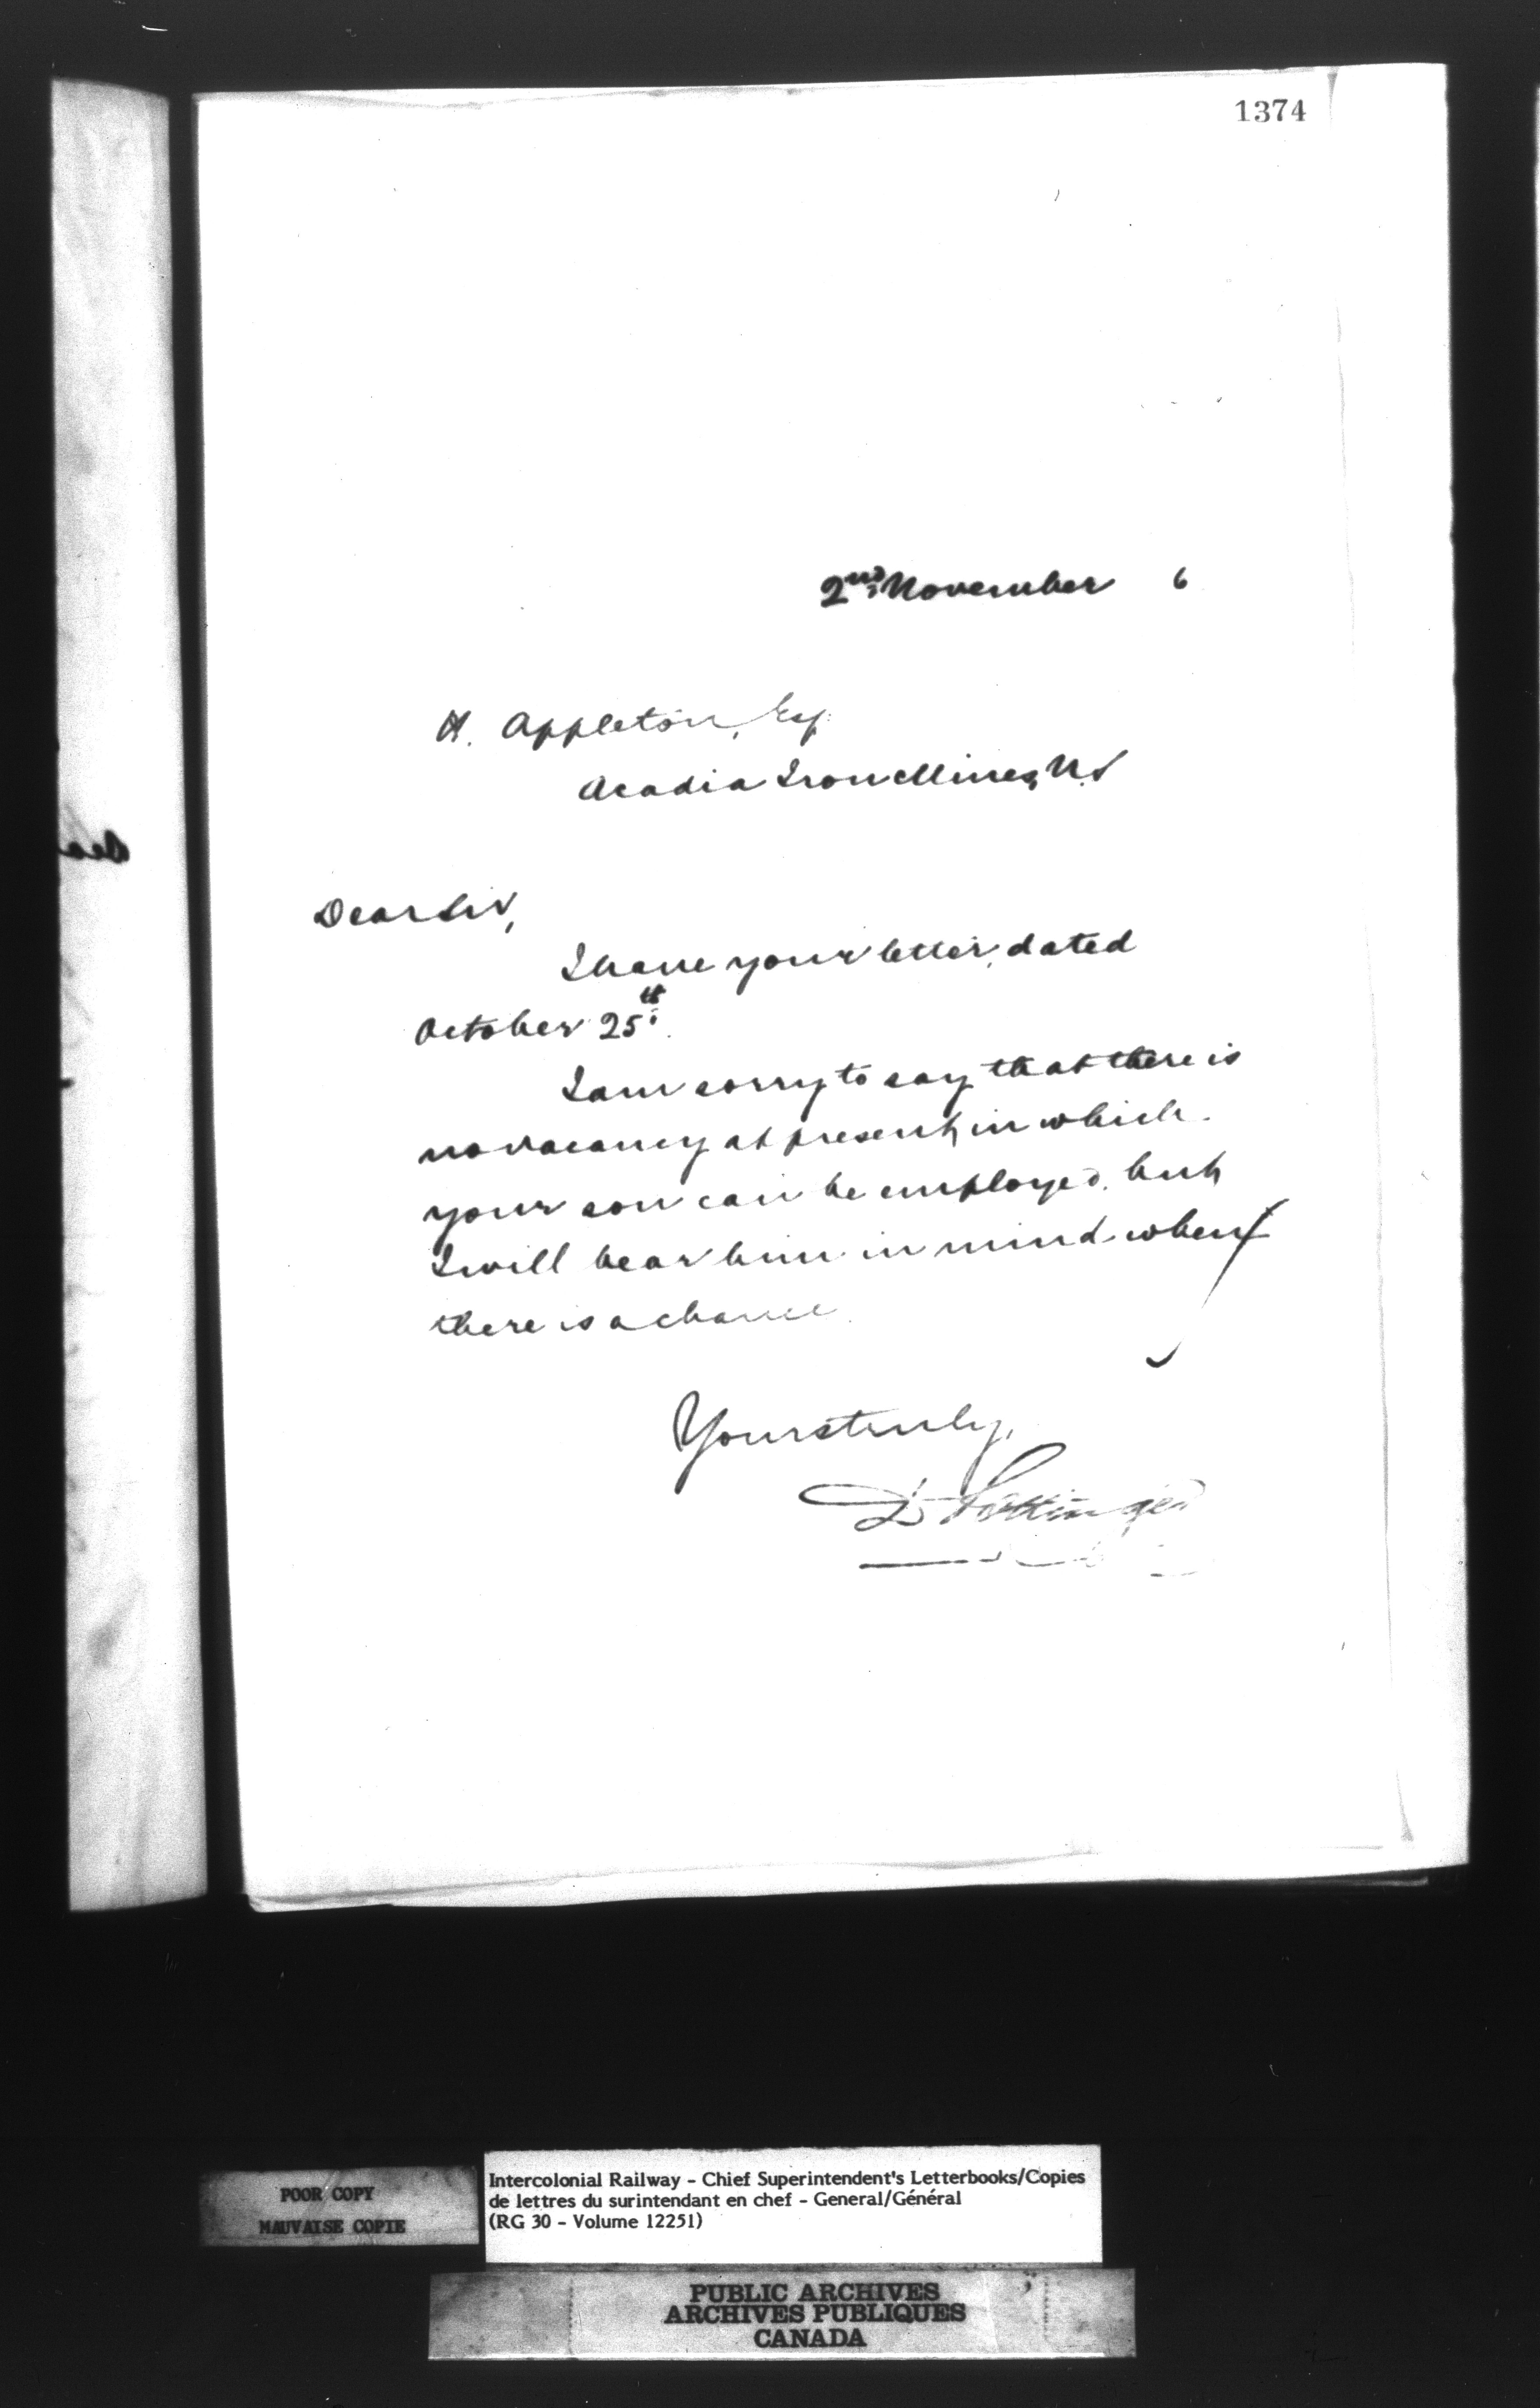 1374
2nd November 6
H. Appleton, Esq.
Acadia Iron Mines, N.S
Dear Sir,
I have your letter, dated
October 25th.
I am sorry to say that there is
no vacancy at present, in which
your son can be employed, but
I will bear him in mind when
there is a chance.
Yours truly,
D Pottinger
POOR COPY
MAUVAISE COPIE
Intercolonial Railway - Chief Superintendent's Letterbooks/Copies
de lettres du surintendant en chef - General/Général
(RG 30 - Volume 12251)
PUBLIC ARCHIVES
ARCHIVES PUBLIQUES
CANADA